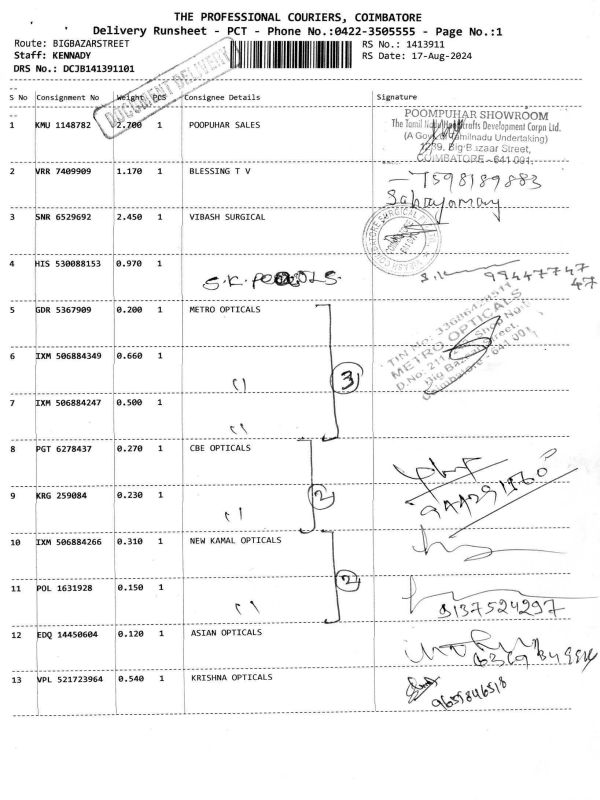 THE PROFESSIONAL COURIERS, COIMBATORE
Delivery Runsheet - PCT - Phone No.:0422-3505555 - Page No.:1
Route: BIGBAZARSTREET RS No.: 1413911
Staff: KENNADY RS Date: 17-Aug-2024
DRS No.: DCJB141391101
DOCUMENT DELIVERY
S No Consignment No Weight PCS Consignee Details Signature
1 KMU 1148782 2.700 1 POOPUHAR SALES
POOMPUHAR SHOWROOM
Development Corpn Ltd.
Tamilnadu Undertaking)
Big Bazaar Street,
COIMBATORE - 641 001.
2 VRR 7409909 1.170 1 BLESSING T V
7598189883
3 SNR 6529692 2.450 1 VIBASH SURGICAL
4 HIS 530088153 0.970 1 S.K.
99447747
47
5 GDR 5367909 0.200 1 METRO OPTICALS
METRO OPTICALS
Big Bazaar Street,
Coimbatore - 641 001
6 IXM 506884349 0.660 1 〃
3
7 IXM 506884247 0.500 1 〃
8 PGT 6278437 0.270 1 CBE OPTICALS
9 KRG 259084 0.230 1 〃
2
10 IXM 506884266 0.310 1 NEW KAMAL OPTICALS
2
11 POL 1631928 0.150 1 〃
8137524297
12 EDQ 14450604 0.120 1 ASIAN OPTICALS
13 VPL 521723964 0.540 1 KRISHNA OPTICALS
9659846518